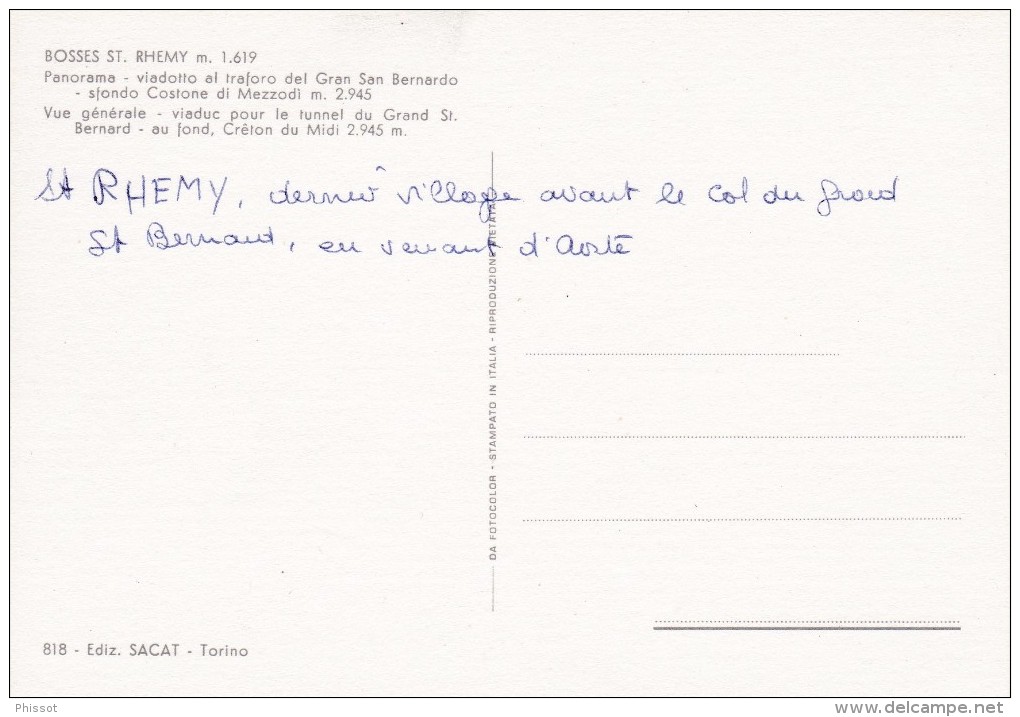 BOSSES ST. RHEMY m. 1.619
Panorama - viadotto al traforo del Gran San Bernardo
- sfondo Costone di Mezzodì m. 2.945
Vue générale - viaduc pour le tunnel du Grand St.
Bernard - au fond, Crêton du Midi 2.945 m.
St RHEMY, dernier village avant le col du grand
St Bernard, en venant d'Aoste
DA FOTOCOLOR - STAMPATO IN ITALIA - RIPRODUZIONE VIETATA
818 - Ediz. SACAT - Torino
Phissot
www.delcampe.net